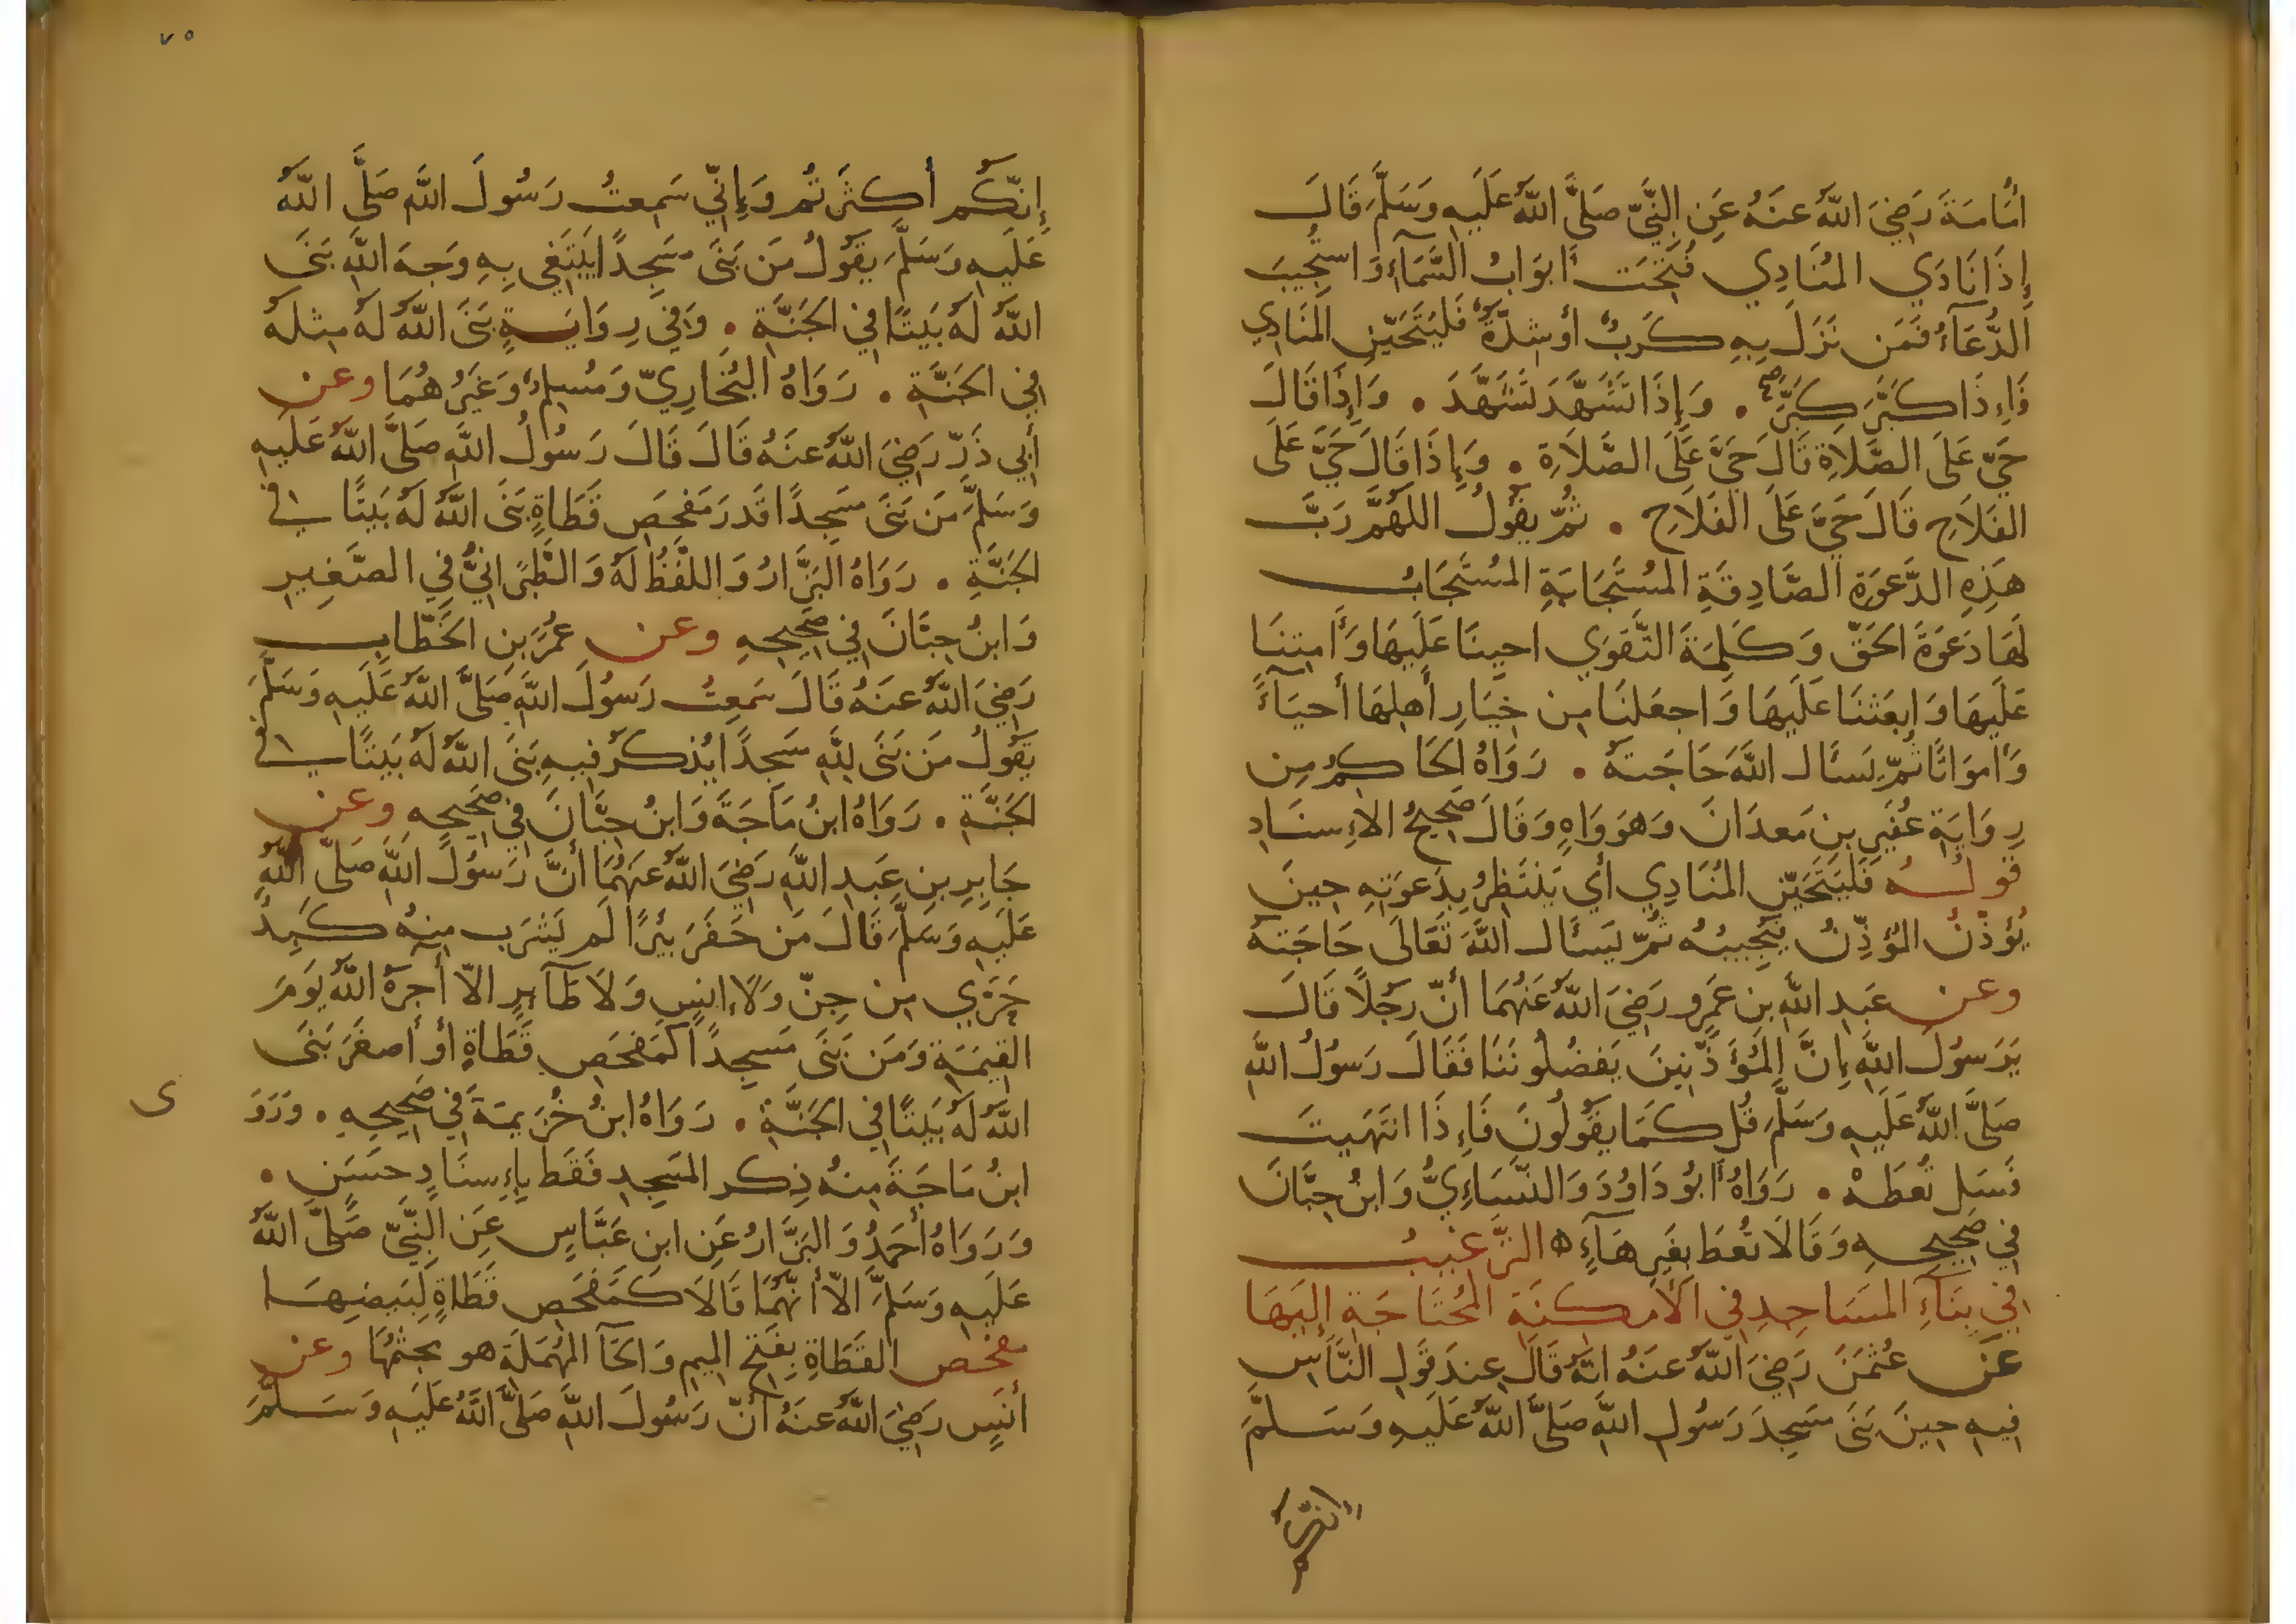 أُمَامَةَ رَضِيَ اللّٰهُ عَنهُ عَنِ النَّبِيِّ صَلَّى اللّٰهُ عَلَيهِ وَسَلَّمَ قَالَ
إِذَا نَادَي المُنَادِي فُتِحَت أَبوَابُ السَّمَآءِ وَاستُجِيبَ
الدُّعَآءُ فَمَن نَزَلَ بِهِ كَربٌ أَو شِدَّةٌ فَليَتَحَيَّنِ المُنَادِي
فَإِذَا كَبَّرَ كَبَّرَ . وَإِذَا تَشَهَّدَ تَشَهَّدَ . وَإِذَا قَالَ
حَيَّ عَلَى الصَّلَاةِ قَالَ حَيَّ عَلَى الصَّلَاةِ . وَإِذَا قَالَ حَيَّ عَلَى
الفَلَاحِ قَالَ حَيَّ عَلَى الفَلَاحِ . ثُمَّ يَقُولُ اللَّهُمَّ رَبَّ
هَذِهِ الدَّعوَةِ الصَّادِقَةِ المُستَجَابَةِ المُستَجَابُ
لَهَا دَعوَةَ الحَقِّ وَكَلِمَةَ التَّقوَي احيِنَا عَلَيهَا وَأَمِتنَا
عَلَيهَا وَابعَثنَا عَلَيهَا وَاجعَلنَا مِن خِيَارِ أَهلِهَا أَحيَآءً
وَأَموَاتًا ثُمَّ يَسئَال اللّٰهَ حَاجَتهُ . رَوَاهُ الحَاكِمُ مِن
رِوَايَةِ عُفَيرِ بنِ مَعدَانَ وَهوَ وَاهٍ وَقَالَ صَحِيحُ الاءِسنَادِ
قولُهُ فَليَتَحَيَّنِ المُنَادِي أَي يَنتَظِرُ بِدَعوَتِهِ حِينَ
يُؤَذِّنُ المُؤَذِّنُ يُجِيبُهُ ثُمَّ يَسئَال اللّٰهَ تَعَالَى حَاجَتهُ
وعن عَبدِ اللّٰهِ بنِ عَمرٍو رَضِيَ اللّٰهُ عَنهُمَا أَنَّ رَجُلًا قَالَ
يَرَسُولَ اللّٰهِ إِنَّ المُؤَذِّنِينَ يَفضُلُونَنَا فَقَالَ رَسُولُ اللّٰهِ
صَلَّى اللّٰهُ عَلَيهِ وَسَلَّمَ قُل كَمَا يَقُولُونَ فَإِذَا انتَهَيتَ
فَسَل تُعطَهْ . رَوَاهُ أَبُو دَاوُدَ وَالنَّسَاءِيُّ وَابنُ حِبَّانَ
فِي صَحِيحِهِ وَقَالَا تُعطَ بِغَيرِ هَآءٍ ه التَّرغِيبُ
فِي بِنَآءِ المَسَاجِدِ فِي الأَمكِنَةِ المُحتَاجَةِ إِلَيهَا
عَن عُثمَنَ رَضِيَ اللّٰهُ عَنهُ انَّهُ قَالَ عِندَ قَولِ النَّاسِ
فِيهِ حِينَ بَنَى مَسجِدَ رَسُولِ اللّٰهِ صَلَّى اللّٰهُ عَلَيهِ وَسَلَّمَ
٧٥
إِنَّكُم أَكثَرتُم وَإِنِّي سَمِعتُ رَسُولَ اللّٰهِ صَلَّى اللّٰهُ
عَلَيهِ وَسَلَّمَ يَقُولُ مَن بَنَى مَسجِدًا يَبتَغِي بِهِ وَجهَ اللّٰهِ بَنَى
اللّٰهُ لَهُ بَيتًا فِي الجَنَّةِ . وَفِي رِوَايَةٍ بَنَى اللّٰهُ لَهُ مِثلَهُ
فِي الجَنَّةِ . رَوَاهُ البُخَارِيُّ وَمُسلِمٌ وَغَيرُهُمَا وعن
أَبِي ذَرٍّ رَضِيَ اللّٰهُ عَنهُ قَالَ قَالَ رَسُولُ اللّٰهِ صَلَّى اللّٰهُ عَلَيهِ
وَسَلَّمَ مَن بَنَى مَسجِدًا قَدرَ مَفحَصِ قَطَاةٍ بَنَى اللّٰهُ لَهُ بَيتًا فِي
الجَنَّةِ . رَوَاهُ البَزَّارُ وَاللَّفظُ لَهُ وَالطَّبَرَانِيُّ فِي الصَّغِيرِ
وَابنُ حِبَّانَ فِي صَحِيحِهِ وعن عُمَرَ بنِ الخَطَّابِ
رَضِيَ اللّٰهُ عَنهُ قَالَ سَمِعتُ رَسُولَ اللّٰهِ صَلَّى اللّٰهُ عَلَيهِ وَسَلَّمَ
يَقُولُ مَن بَنَى لِلّٰهِ مَسجِدًا يُذكَرُ فِيهِ بَنَى اللّٰهُ لَهُ بَيتًا فِي
الجَنَّةِ . رَوَاهُ ابنُ مَاجَةَ وَابنُ حِبَّانَ فِي صَحِيحِهِ وعن
جَابِرِ بنِ عَبدِ اللّٰهِ رَضِيَ اللّٰهُ عَنهُمَا أَنَّ رَسُولَ اللّٰهِ صَلَّى اللّٰهُ
عَلَيهِ وَسَلَّمَ قَالَ مَن حَفَرَ بِئرًا لَم يَشرَب مِنهُ كَبِدٌ
حَرَّي مِن جِنٍّ وَلَاءِ انسٍ وَلَا طَآيرٍ الَّا آجَرَهُ اللّٰهُ يَومَ
القِيمَةِ وَمَن بَنَى مَسجِدًا كَمَفحَصِ قَطَاةٍ أَو أَصغَرَ بَنَى
اللّٰهُ لَهُ بَيتًا فِي الجَنَّةِ . رَوَاهُ ابنُ خُزَيمَةَ فِي صَحِيحِهِ . وَرَوَ ى
ابنُ مَاجَةَ مِنهُ ذِكر المَسجِدِ فَقَط بِإِسنَادٍ حَسَنٍ .
وَرَوَاهُ أَحمَدُ وَالبَزَّارُ عَنِ ابنِ عَبَّاسٍ عَنِ النَّبِيِّ صَلَّى اللّٰهُ
عَلَيهِ وَسَلَّمَ الَّا أَنَّهُمَا قَالَا كَمَفحَصِ قَطَاةٍ لِبَيضِهَا
مفحص القَطَاةِ بِفَتحِ المِيمِ وَالحَآ المُهمَلَةِ هو مجثمُهَا وعن
أَنَسٍ رَضِيَ اللّٰهُ عَنهُ أَنَّ رَسُولَ اللّٰهِ صَلَّى اللّٰهُ عَلَيهِ وَسَلَّمَ